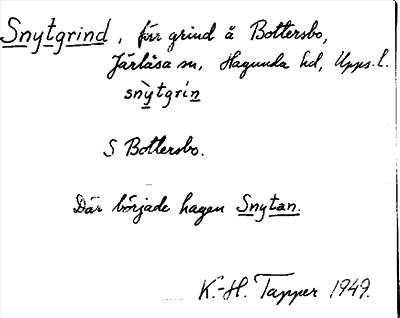 Snytgrind, förr grind å Bottersbo,
Järlåsa sn, Hagunda hd, Upps. l.
snỳtgrin
S Bottersbo.
Där började hagen Snytan.
K.-H. Tapper 1949.